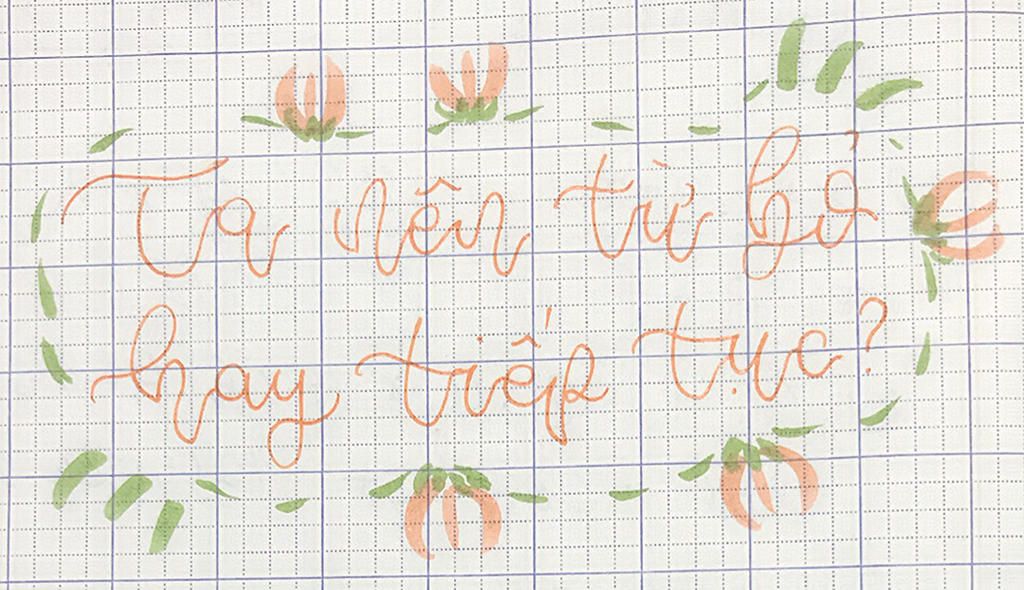 Ta nên từ bỏ
hay tiếp tục?